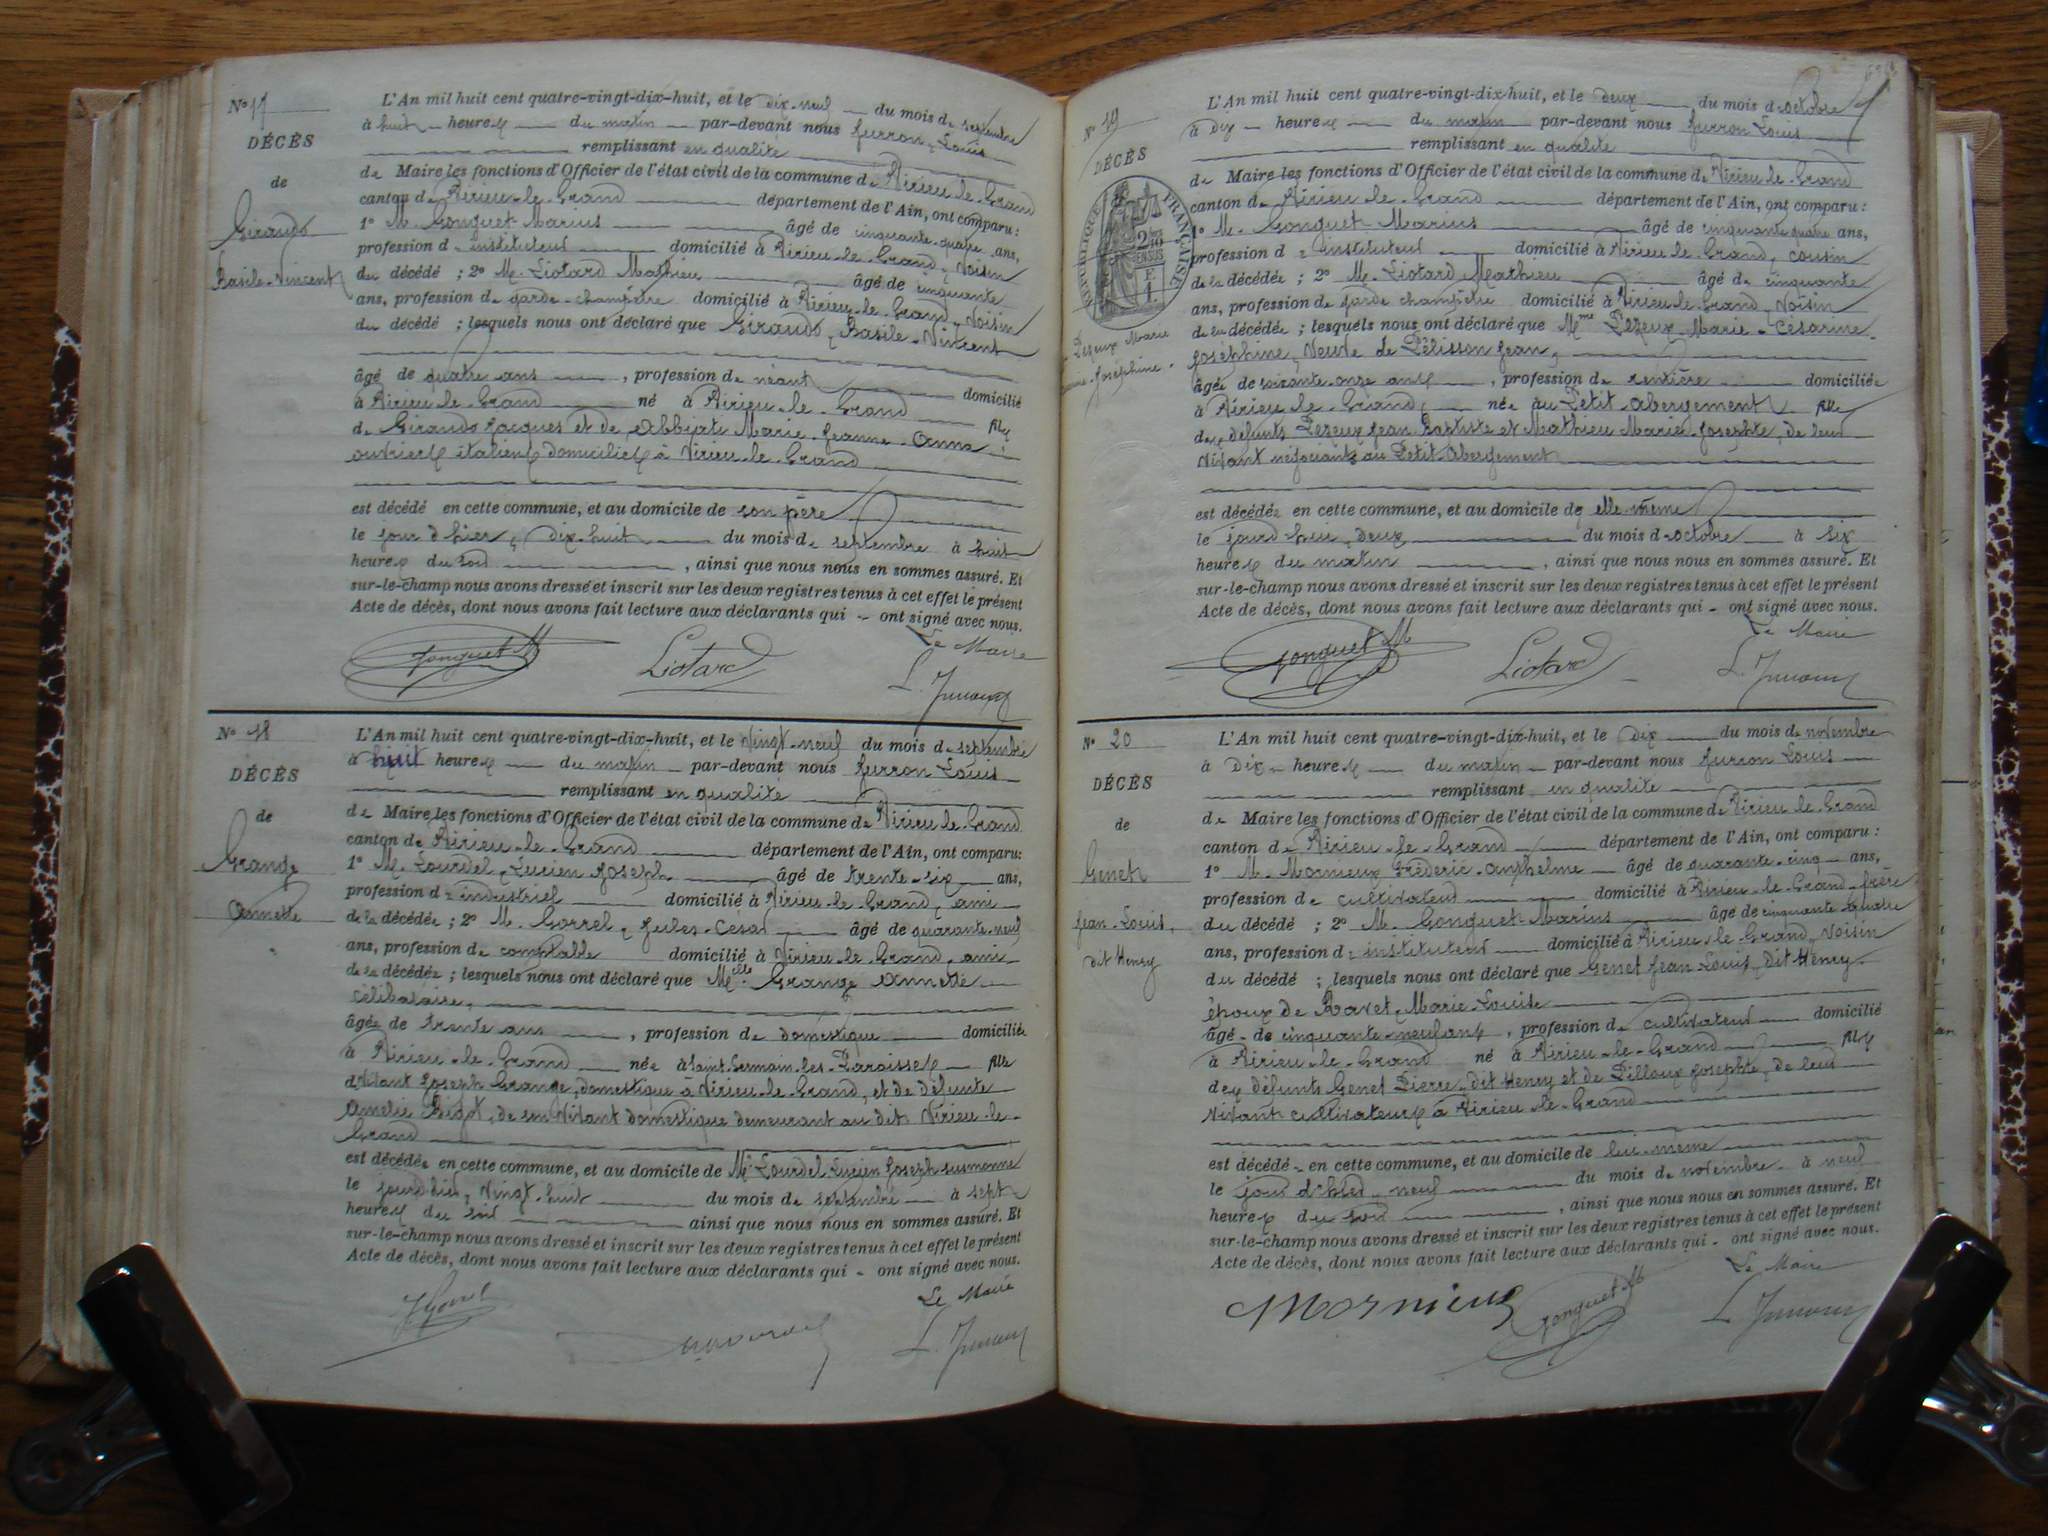 Nº 17
DÉCÈS
de
Giraudo
Basile-Vincent
L'An mil huit cent quatre-vingt-dix-huit, et le dix-neuf du mois de septembre
à huit heures du matin par-devant nous Jurron Louis
remplissant en qualité
de Maire les fonctions d'Officier de l'état civil de la commune de Virieu-le-Grand
canton de Virieu-le-Grand département de l'Ain, ont comparu :
1º M. Gonguet Marius âgé de cinquante-quatre ans,
profession d'instituteur domicilié à Virieu-le-Grand, voisin
du décédé ; 2º M. Liotard Mathieu âgé de cinquante
ans, profession de garde-champêtre domicilié à Virieu-le-Grand, voisin
du décédé ; lesquels nous ont déclaré que Giraudo, Basile-Vincent
âgé de quatre ans, profession de néant domicilié
à Virieu-le-Grand né à Virieu-le-Grand fils
de Giraudo Jacques et de Marie-Jeanne-Anna
ouvriers italiens domiciliés à Virieu-le-Grand
est décédé en cette commune, et au domicile de son père
le jour d'hier, dix-huit du mois de septembre à huit
heures du soir, ainsi que nous nous en sommes assuré. Et
sur-le-champ nous avons dressé et inscrit sur les deux registres tenus à cet effet le présent
Acte de décès, dont nous avons fait lecture aux déclarants qui ont signé avec nous.
Le Maire
Gonguet M Liotard
Nº 18
DÉCÈS
de
Grange
Annette
L'An mil huit cent quatre-vingt-dix-huit, et le vingt-neuf du mois de septembre
à huit heures du matin par-devant nous Jurron Louis
remplissant en qualité
de Maire les fonctions d'Officier de l'état civil de la commune de Virieu-le-Grand
canton de Virieu-le-Grand département de l'Ain, ont comparu :
1º M. Lourdel, Lucien Joseph âgé de trente-six ans,
profession d'industriel domicilié à Virieu-le-Grand, ami
de la décédée ; 2º M. Gorrel, Jules-César âgé de quarante-neuf
ans, profession de comptable domicilié à Virieu-le-Grand, ami
de la décédée ; lesquels nous ont déclaré que Melle Grange Annette
célibataire,
âgée de trente ans, profession de domestique domiciliée
à Virieu-le-Grand née à Saint-Germain-les-Paroisses fille
de vivant Joseph Grange, domestique à Virieu-le-Grand, et de défunte
Amélie Bigot, de son vivant domestique demeurant au dit Virieu-le-
Grand
est décédée en cette commune, et au domicile de Mr Lourdel Lucien Joseph susnommé
le jour d'hier, vingt-huit du mois de septembre à sept
heures du soir ainsi que nous nous en sommes assuré. Et
sur-le-champ nous avons dressé et inscrit sur les deux registres tenus à cet effet le présent
Acte de décès, dont nous avons fait lecture aux déclarants qui ont signé avec nous.
Le Maire
Nº 19
DÉCÈS
RÉPUBLIQUE FRANÇAISE
Lezeux Marie
Joséphine
L'An mil huit cent quatre-vingt-dix-huit, et le deux du mois d'octobre
à dix heures du matin par-devant nous Jurron Louis
remplissant en qualité
de Maire les fonctions d'Officier de l'état civil de la commune de Virieu-le-Grand
canton de Virieu-le-Grand département de l'Ain, ont comparu :
1º M. Gonguet Marius âgé de cinquante-quatre ans,
profession d'instituteur domicilié à Virieu-le-Grand, cousin
de la décédée ; 2º M. Liotard Mathieu âgé de cinquante
ans, profession de garde champêtre domicilié à Virieu-le-Grand, voisin
de la décédée ; lesquels nous ont déclaré que Mme Lezeux Marie-Césarine
Joséphine, veuve de Pélisson Jean,
âgée de soixante-onze ans, profession de rentière domiciliée
à Virieu-le-Grand, née au Petit-Abergement fille
des défunts Lezeux Jean Baptiste et Mathieu Marie-Josephte, de leur
vivant négociants au Petit-Abergement
est décédée en cette commune, et au domicile de elle-même
le jourd'hui, deux du mois d'octobre à six
heures du matin, ainsi que nous nous en sommes assuré. Et
sur-le-champ nous avons dressé et inscrit sur les deux registres tenus à cet effet le présent
Acte de décès, dont nous avons fait lecture aux déclarants qui ont signé avec nous.
Le Maire
Gonguet M Liotard
Nº 20
DÉCÈS
de
Genet
Jean-Louis,
dit Henry
L'An mil huit cent quatre-vingt-dix-huit, et le dix du mois de novembre
à dix heures du matin par-devant nous Jurron Louis
remplissant en qualité
de Maire les fonctions d'Officier de l'état civil de la commune de Virieu-le-Grand
canton de Virieu-le-Grand département de l'Ain, ont comparu :
1º M. Mornieux Frédéric-Anthelme âgé de quarante-cinq ans,
profession de cultivateur domicilié à Virieu-le-Grand, frère
du décédé ; 2º M. Gonguet Marius âgé de cinquante-quatre
ans, profession d'instituteur domicilié à Virieu-le-Grand, voisin
du décédé ; lesquels nous ont déclaré que Genet Jean Louis, dit Henry
époux de Ravet Marie-Louise
âgé de cinquante-neuf ans, profession de cultivateur domicilié
à Virieu-le-Grand né à Virieu-le-Grand fils
des défunts Genet Pierre, dit Henry et de Pilloux Josephte, de leur
vivant cultivateurs à Virieu-le-Grand
est décédé en cette commune, et au domicile de lui-même
le jour d'hier, neuf du mois de novembre à neuf
heures du soir, ainsi que nous nous en sommes assuré. Et
sur-le-champ nous avons dressé et inscrit sur les deux registres tenus à cet effet le présent
Acte de décès, dont nous avons fait lecture aux déclarants qui ont signé avec nous.
Le Maire
Mornieux Gonguet M